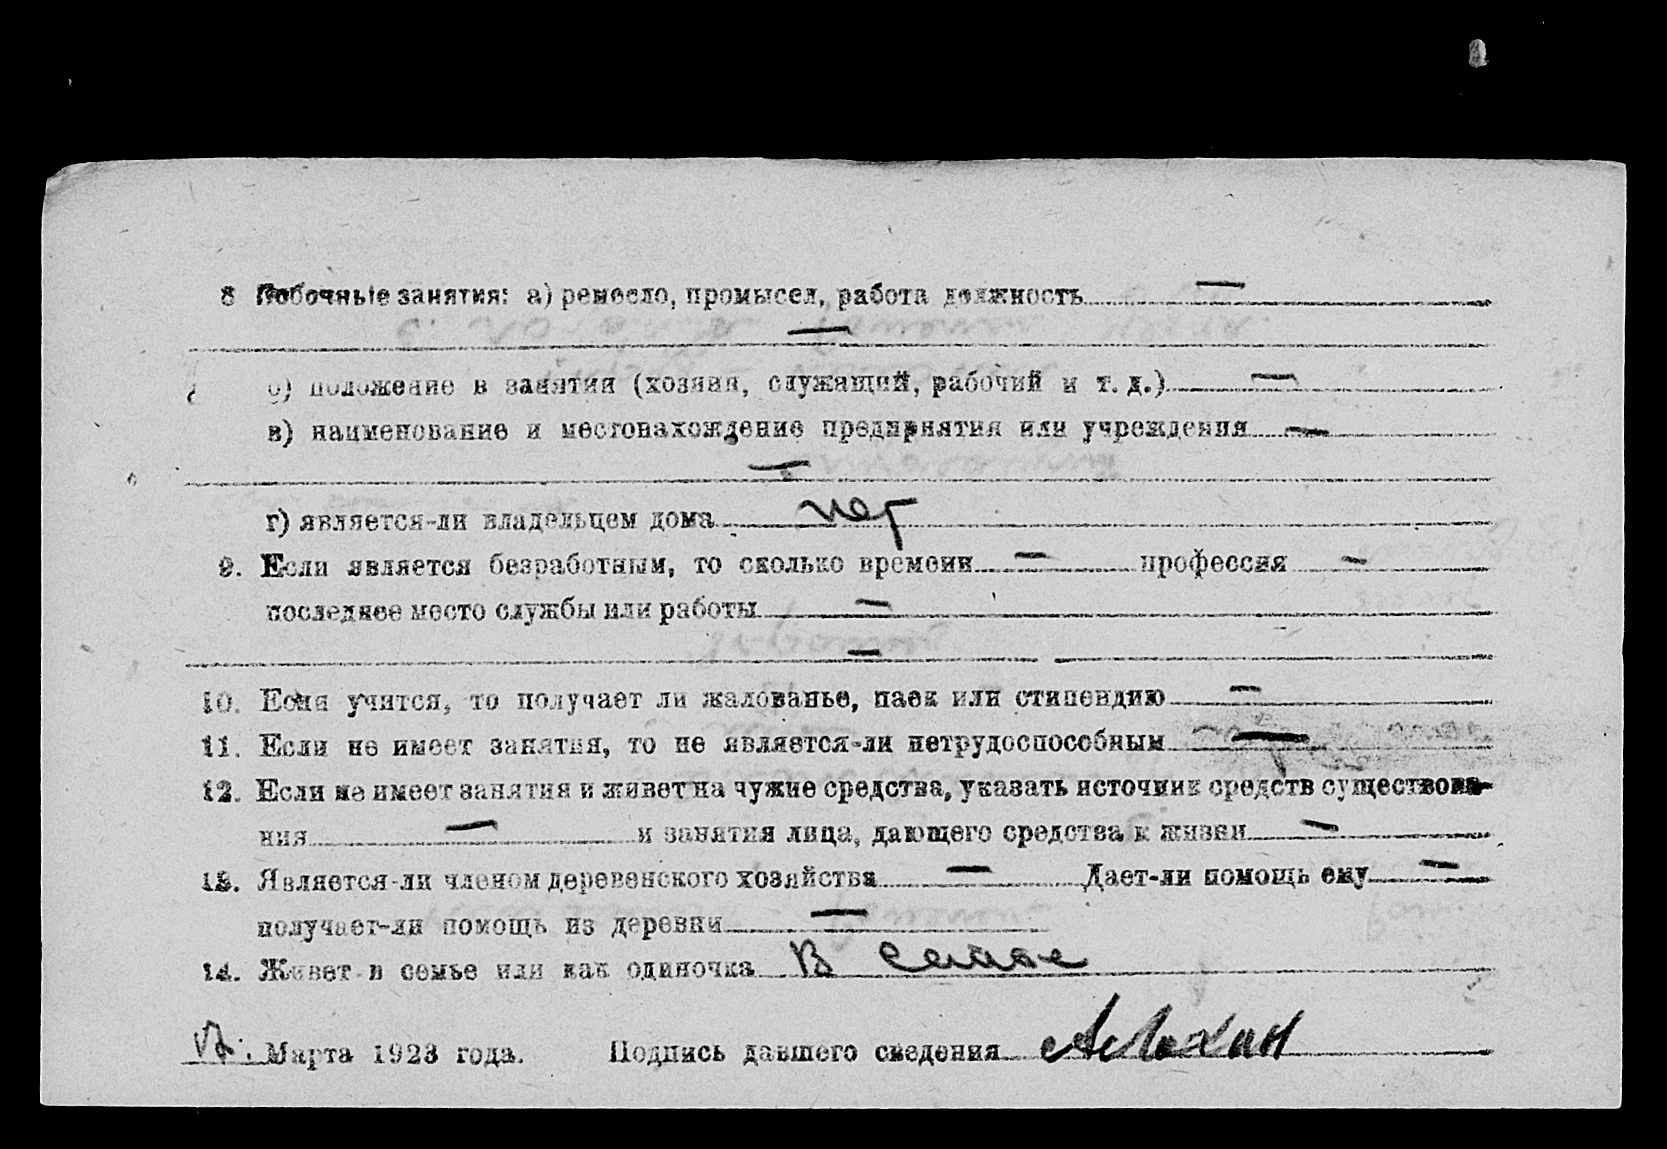 8 Побочные занятия: а) ремесло, промысел, работа должность —
—
б) положение в занятии (хозяин, служащий, рабочий и т. д.) —
в) наименование и местонахождение предприятия или учреждения —
—
г) является-ли владельцем дома нет
9. Если является безработным, то сколько времени — профессия —
последнее место службы или работы —
—
10. Если учится, то получает ли жалованье, паек или стипендию —
11. Если не имеет занятия, то не является-ли нетрудоспособным —
12. Если не имеет занятия и живет на чужие средства, указать источник средств существова-
ния — и занятия лица, дающего средства к жизни —
13. Является-ли членом деревенского хозяйства — Дает-ли помощь ему —
получает-ли помощь из деревни —
14. Живет в семье или как одиночка В семье
Марта 1923 года. Подпись давшего сведения